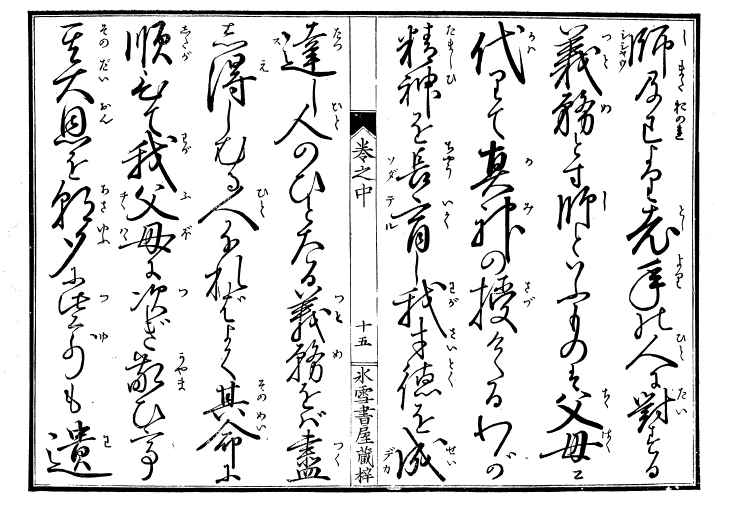 師及己より老年の人に對する
義務とす師といふものは父母に
代りて真神の授けたるわが
精神を長育し我才徳を成
巻之中
十五
氷雪書屋蔵梓
達し人のひとたる義務をば盡
し得しむる人なればよく其命に
順ひて我父母に次ぎ敬ひ事
其大恩を朝夕に も遺